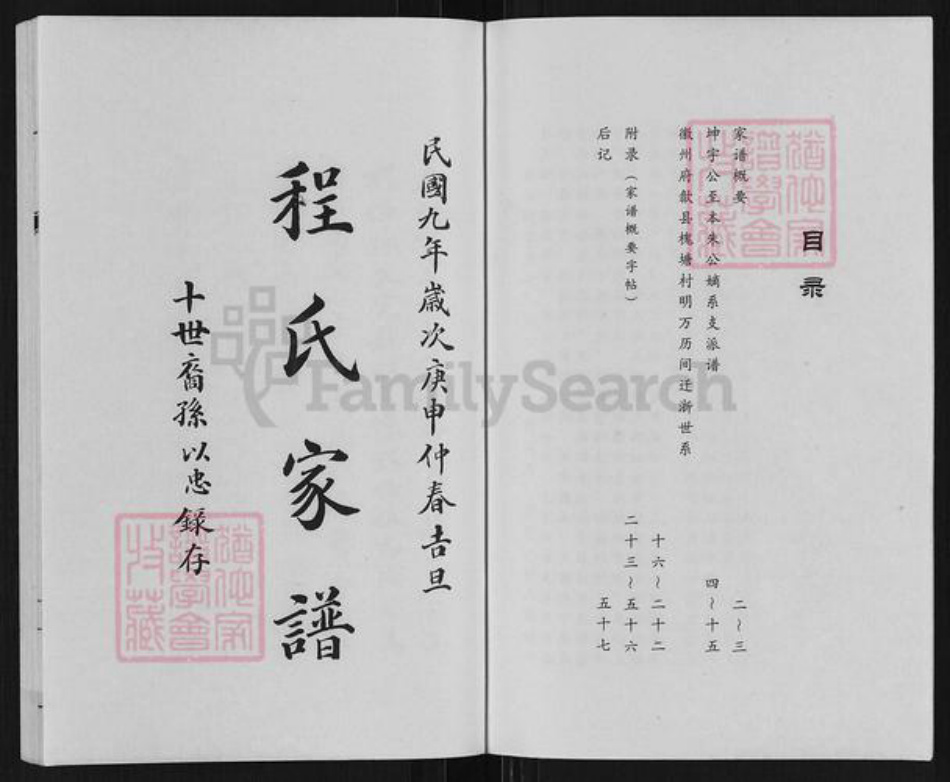 目录
家谱概要 二~三
坤宇公至本朱公嫡系支派谱 四~十五
徽州府歙县槐塘村明万历间迁浙世系 十六~二十二
附录（家谱概要字帖） 二十三~五十六
后记 五十七
民國九年歲次庚申仲春吉旦
程氏家譜
十世裔孫以忠錄存
FamilySearch